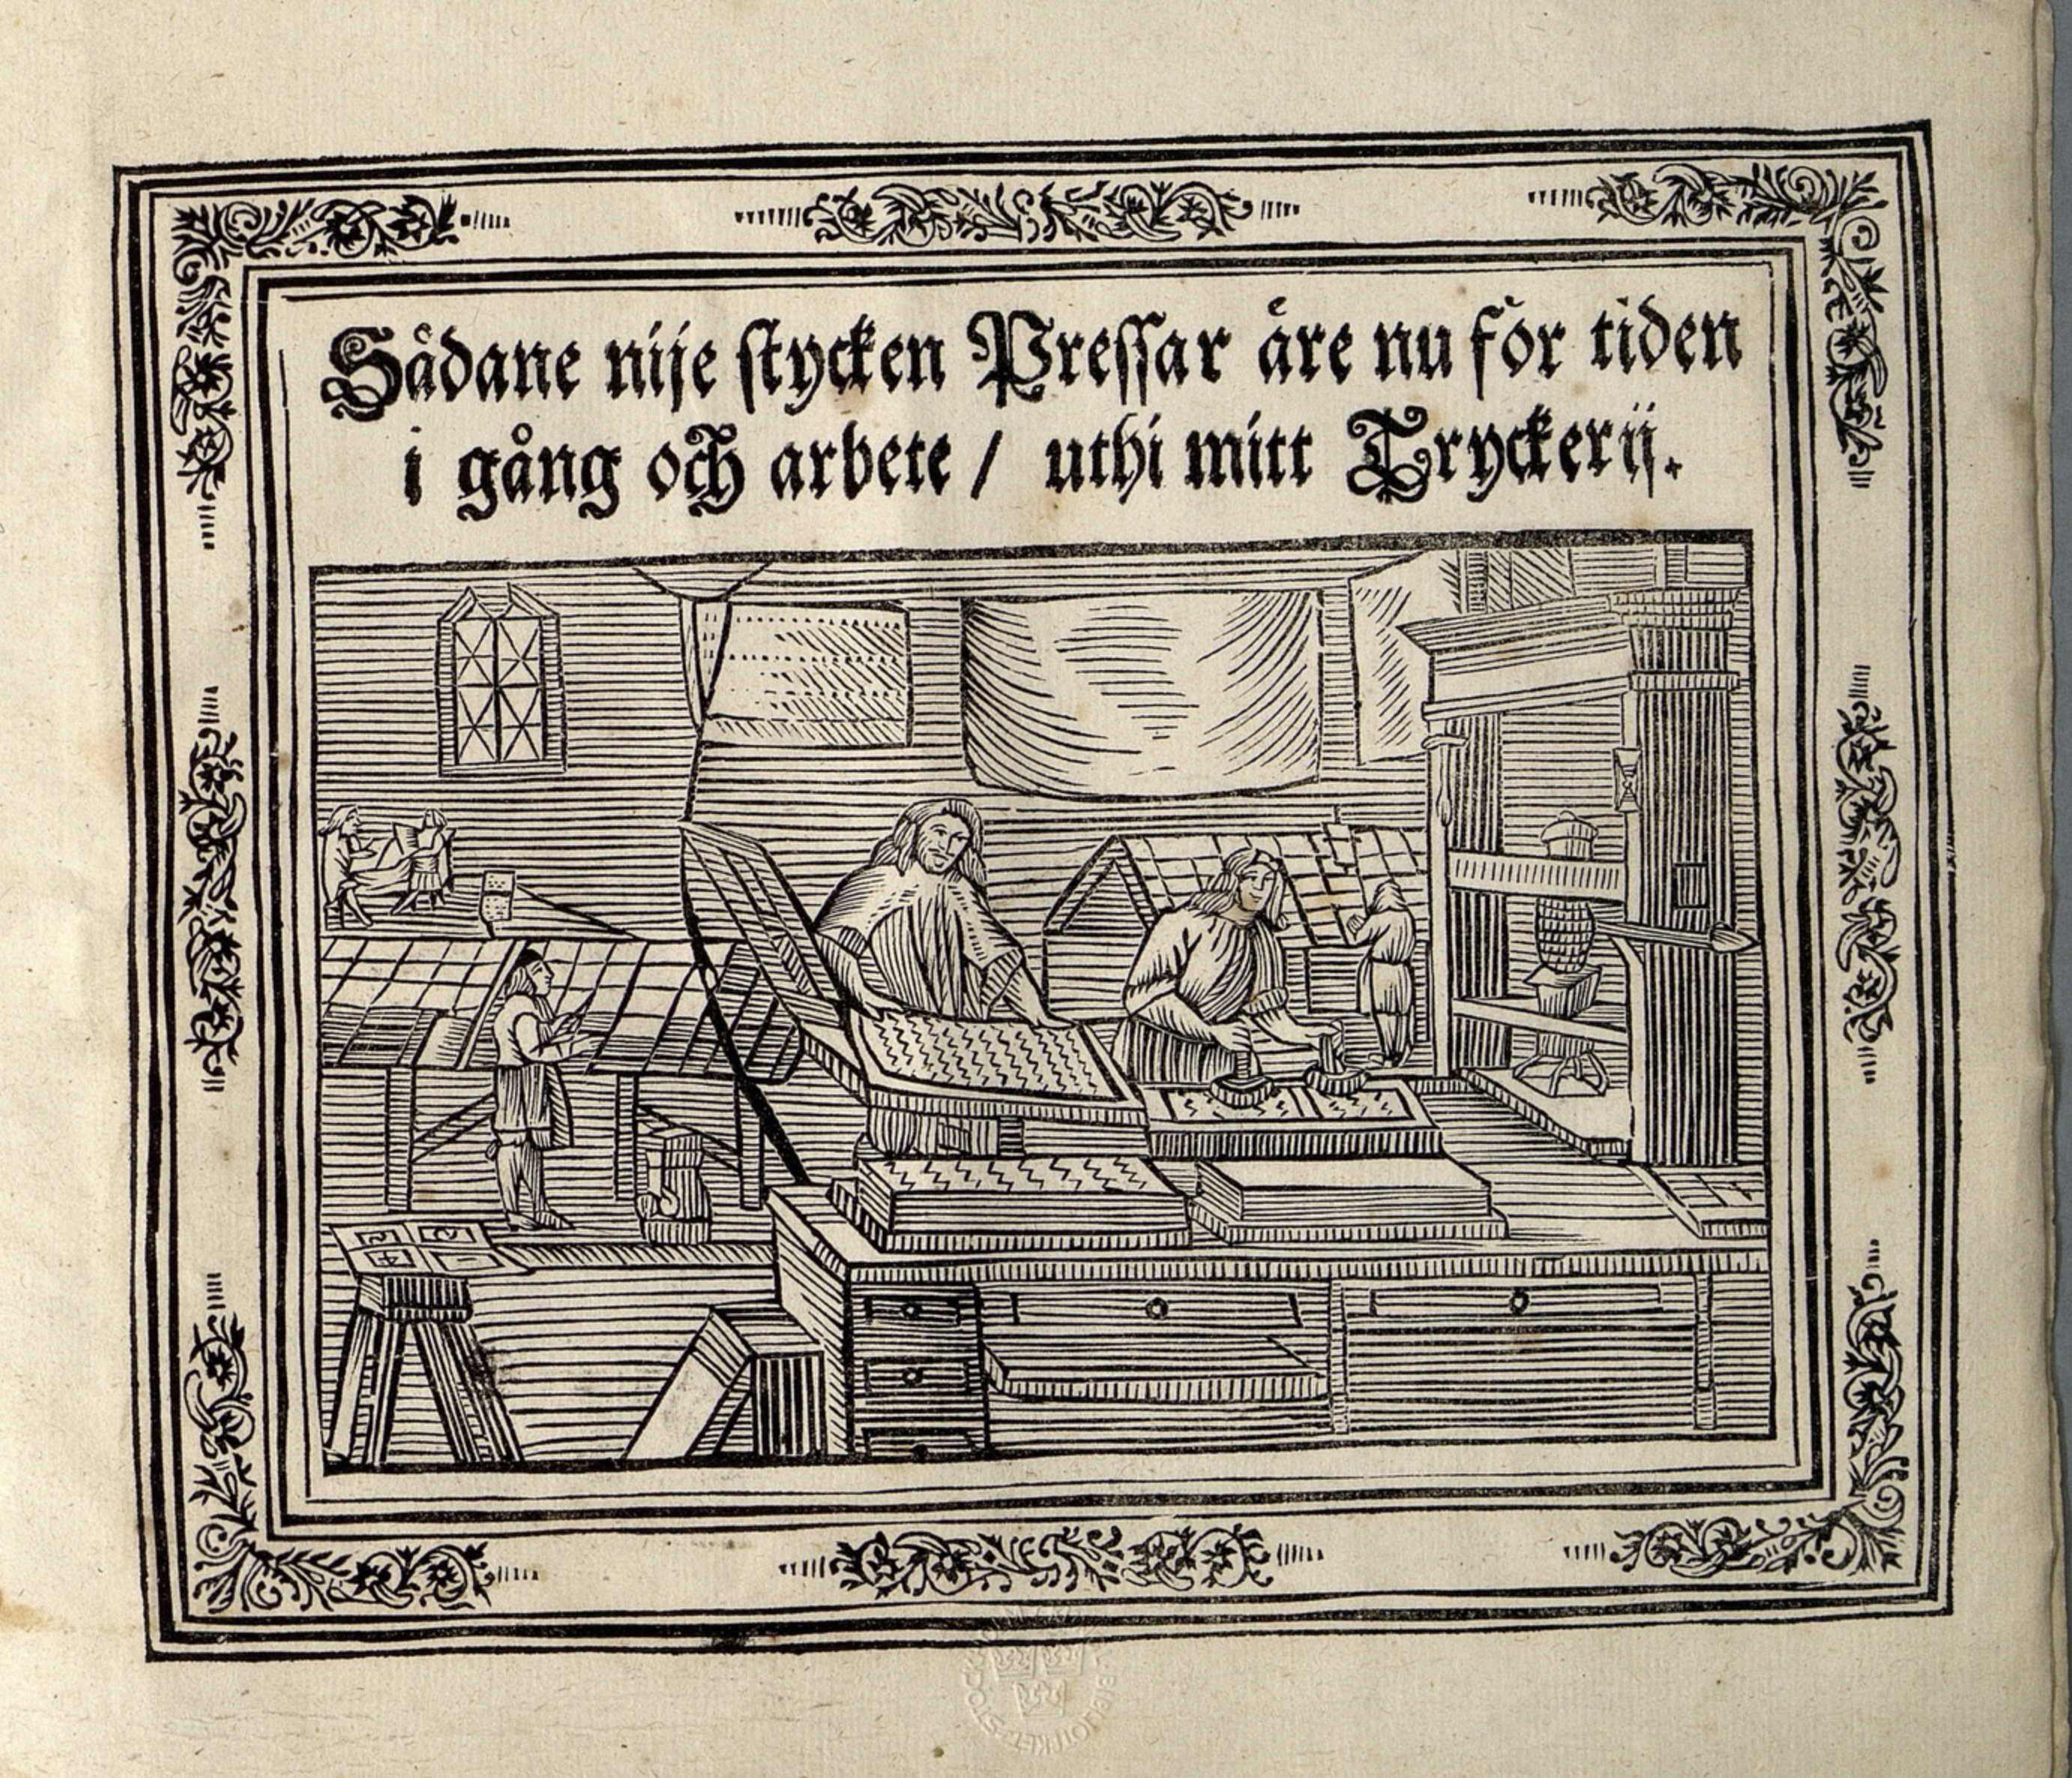 Sådane nije stycken Pressar äre nu för tiden
i gång och arbete / uthi mitt Tryckerij.